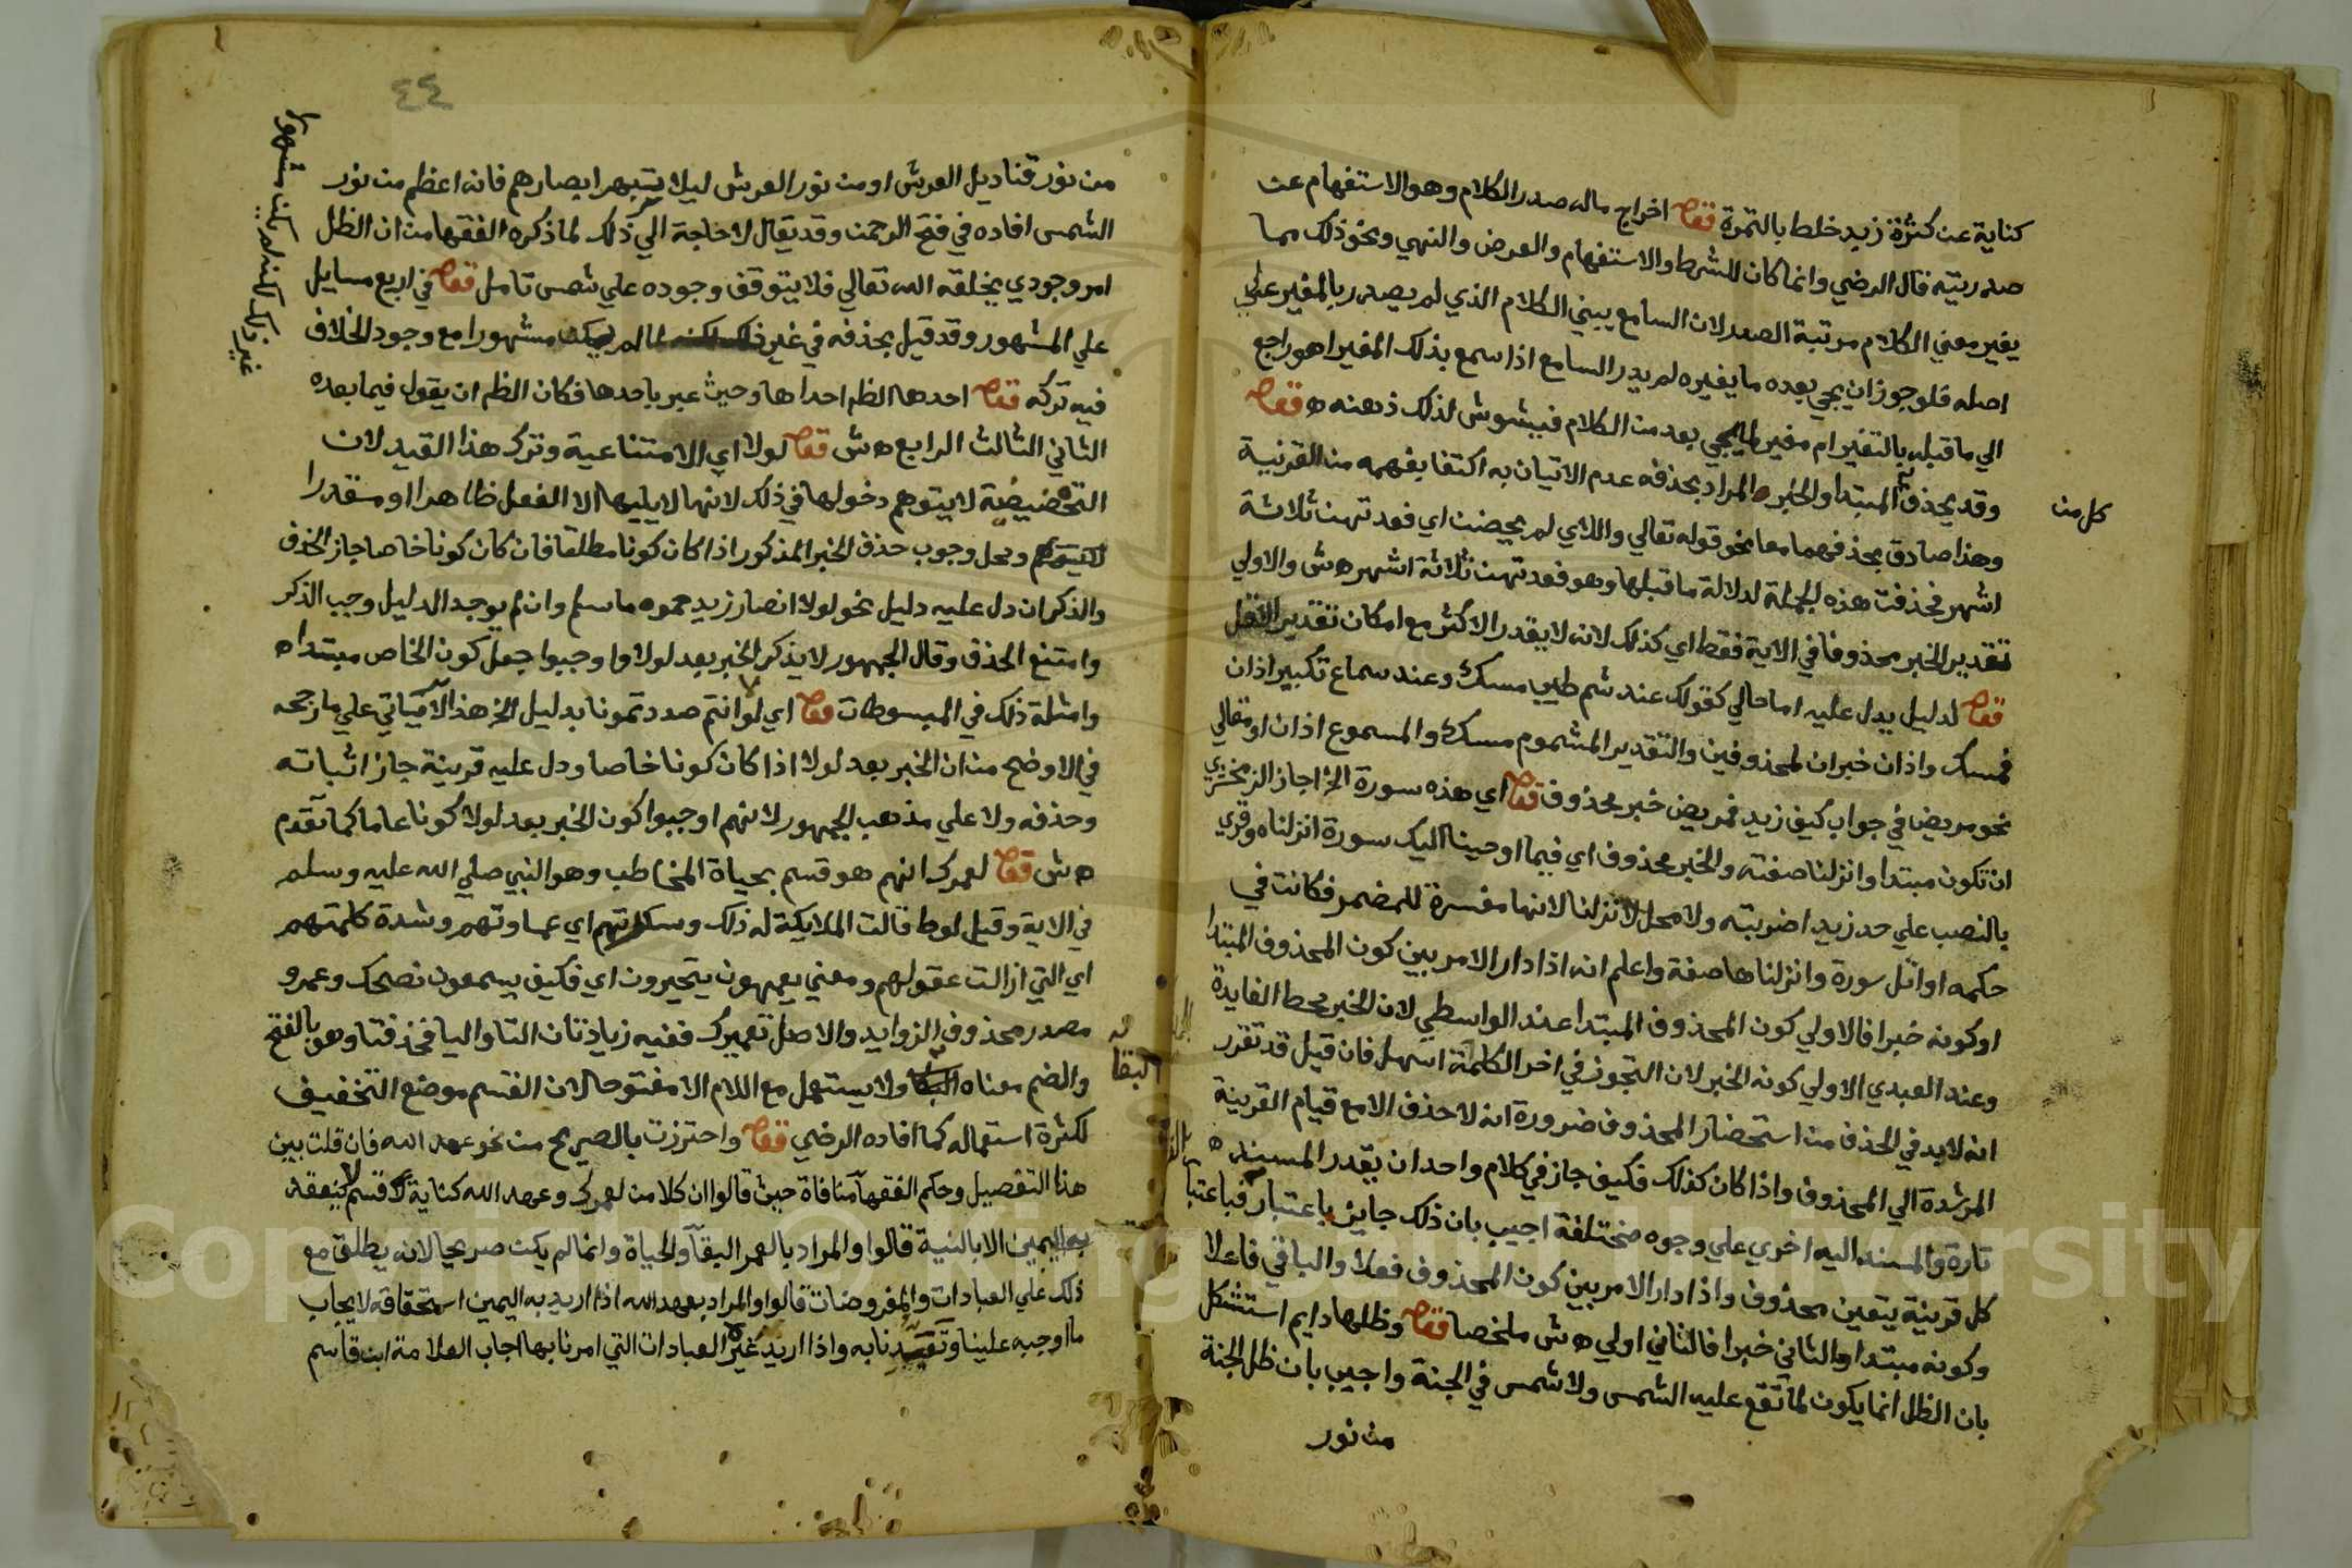 كناية عن كثرة زيد خلط بالتمرة قوله اخراج ماله صدر الكلام وهو الاستفهام عن
صدريته قال الرضي وانما كان للشرط والاستفهام والعرض والنهي ونحو ذلك مما
يغير معني الكلام مرتبة الصدر لان السامع يبني الكلام الذي لم يصدر بالمغير علي
اصله فلو جوز ان يجي بعده ما يغيره لم يدر السامع اذا سمع بذلك المغير اهو راجع
الي ما قبله بالتغير ام مغير لما يجي بعد من الكلام فيشوش لذلك ذهنه ه قوله
وقد يحذف المبتدا والخبر المراد بحذفه عدم الاتيان به اكتفا بفهمه من القرنية
كل من
وهذا صادق بحذفهما معا نحو قوله تعالي واللاي لم يحضن اي فعدتهن ثلاثة
اشهر فحذفت هذه الجملة لدلالة ما قبلها وهو فعدتهن ثلاثة اشهر ه ش والاولي
تقدير الخبر محذوفا في الاية فقط اي كذلك لانه لا يقدر الاكثر مع امكان تقدير الاقل
قوله لدليل يدل عليه اما حالي كقولك عند شم طيب مسك وعند سماع تكبير اذان
فمسك واذان خبران لمحذوفين والتقدير المشموم مسك والمسموع اذان او مقالي
نحو مريض في جواب كيف زيد فمريض خبر محذوف قوله اي هذه سورة الخ اجاز الزمخشري
ان تكون مبتدا وانزلنا صفته والخبر محذوف اي فيما اوحينا اليك سورة انزلناه وقري
بالنصب علي حد زيدا ضربته ولا محل لانزلنا لانها مفسرة للمضمر فكانت في
حكمه او اتل سورة وانزلناها صفة واعلم انه اذا دار الامر بين كون المحذوف المبتدا
او كونه خبرا فالاولي كون المحذوف المبتدا عند الواسطي لان الخبر محط الفايدة
وعند العبدي الاولي كونه الخبر لان التجوز في اخر الكلمة اسهل فان قيل قد تقرر
انه لا بد في الحذف من استحضار المحذوف ضرورة انه لا حذف الا مع قيام القرينة
المرشدة الي المحذوف واذا كان كذلك فكيف جاز في كلام واحد ان يقدر المسند ه
تارة والمسند اليه اخري علي وجوه مختلفة اجيب بان ذلك جايز باعتبار فباعتبا
كل قرينة يتعين محذوف واذا دار الامر بين كون المحذوف فعلا والباقي فاعلا
وكونه مبتدا والثاني خبرا فالثاني اولي ه ش ملخصا قوله وظلها دايم استشكل
بان الظل انما يكون لما تقع عليه الشمس ولا شمس في الجنة واجيب بان ظل الجنة
من نور
٤٤
من نور قناديل العرش او من نور العرش ليلا يتبهر ابصارهم فانه اعظم من نور
الشمس افاده في فتح الرحمن وقد يقال لا حاجة الي ذلك لما ذكره الفقها من ان الظل
امر وجودي يخلقه الله تعالي فلا يتوقف وجوده علي شمس تامل قوله في اربع مسايل
علي المشهور وقد قيل بحذفه في غير ذلك لكنه لما لم يكن مشهورا مع وجود الخلاف
غير ذلك لكنه لم يكن مشهورا
فيه تركه قوله احدها الظم احداها وحيث عبر باحدها فكان الظم ان يقول فيما بعده
الثاني الثالث الرابع ه ش قوله لولا اي الامتناعية وترك هذا القيد لان
التحضيضية لا يتوهم دخولها في ذلك لانها لا يليها الا الفعل ظاهرا او مقدرا
ومحل وجوب حذف الخبر المذكور اذا كان كونا مطلقا فان كان كونا خاصا جاز الحذف
والذكر ان دل عليه دليل نحو لولا انصار زيد حموه ما سلم وان لم يوجد الدليل وجب الذكر
وامتنع الحذف وقال الجمهور لا يذكر الخبر بعد لولا واوجبوا جعل كون الخاص مبتدا ه
وامثلة ذلك في المبسوطات قوله اي لولا انتم صددتمونا بدليل الخ هذا لا ياتي علي ما رجحه
في الاوضح من ان الخبر بعد لولا اذا كان كونا خاصا ودل عليه قرينة جاز اثباته
وحذفه ولا علي مذهب الجمهور لانهم اوجبوا كون الخبر بعد لولا كونا عاما كما تقدم
ه ش قوله لعمرك انهم هو قسم بحياة المخاطب وهو النبي صلي الله عليه وسلم
في الاية وقيل لوط قالت الملايكة له ذلك وسكرتهم اي عماوتهم وشدة كلمتهم
اي التي ازالت عقولهم ومعني يعمهون يتحيرون اي فكيف يسمعون نصحك وعمرو
مصدر محذوف الزوايد والاصل تعميرك ففيه زيادتان التا واليا فحذفتا وهو بالفتح
والضم معناه البقا ولا يستعمل مع اللام الا مفتوحا لان القسم موضع التخفيف
البقا
لكثرة استعماله كما افاده الرضي قوله واحترزت بالصريح من نحو عهد الله فان قلت بين
هذا التفصيل وحكم الفقها منافاة حيث قالوا ان كلا من لعمرك وعهد الله كناية قسم لا ينعقد
به اليمين الا بالنية قالوا والمراد بالعمر البقا والحياة وانما لم يكن صريحا لانه يطلق مع
ذلك علي العبادات والمفروضات قالوا والمراد بعهد الله اذا اريد به اليمين استحقاقه لايجاب
ما اوجبه علينا وتعبدنا به واذا اريد غيره العبادات التي امرنا بها اجاب العلامة ابن قاسم
Copyright © King Saud University